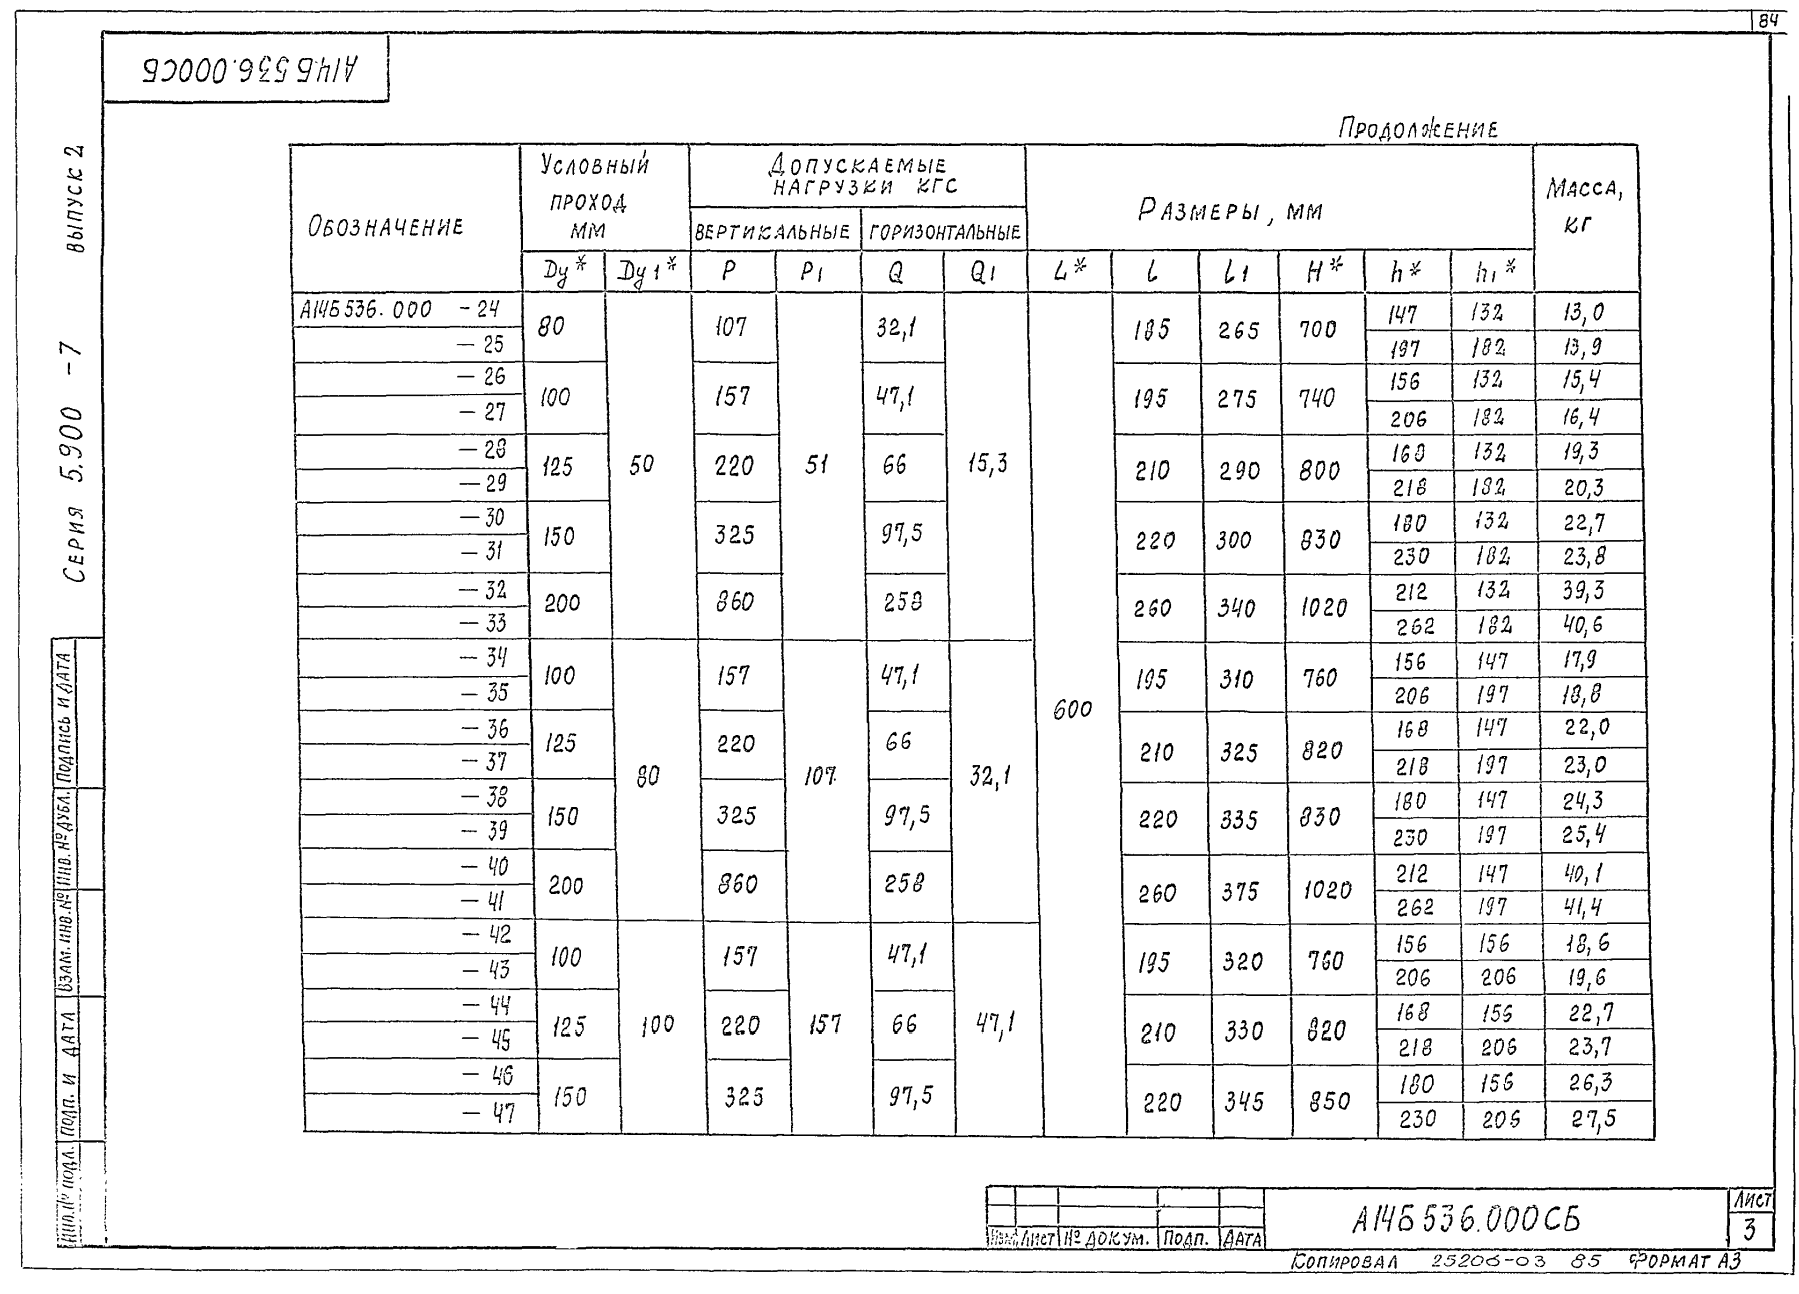 84
А14Б536.000СБ
Продолжение
Обозначение | Условный проход мм | Допускаемые нагрузки кгс | Размеры, мм | Масса, кг
вертикальные | горизонтальные
Dy* | Dy1* | P | P1 | Q | Q1 | L* | l | l1 | H* | h* | h1*
А14Б536.000 -24 | 80 | 50 | 107 | 51 | 32,1 | 15,3 | 600 | 185 | 265 | 700 | 147 | 132 | 13,0
-25 | 197 | 182 | 13,9
-26 | 100 | 157 | 47,1 | 195 | 275 | 740 | 156 | 132 | 15,4
-27 | 206 | 182 | 16,4
-28 | 125 | 220 | 66 | 210 | 290 | 800 | 168 | 132 | 19,3
-29 | 218 | 182 | 20,3
-30 | 150 | 325 | 97,5 | 220 | 300 | 830 | 180 | 132 | 22,7
-31 | 230 | 182 | 23,8
-32 | 200 | 860 | 258 | 260 | 340 | 1020 | 212 | 132 | 39,3
-33 | 262 | 182 | 40,6
-34 | 100 | 80 | 157 | 107 | 47,1 | 32,1 | 195 | 310 | 760 | 156 | 147 | 17,9
-35 | 206 | 197 | 18,8
-36 | 125 | 220 | 66 | 210 | 325 | 820 | 168 | 147 | 22,0
-37 | 218 | 197 | 23,0
-38 | 150 | 325 | 97,5 | 220 | 335 | 830 | 180 | 147 | 24,3
-39 | 230 | 197 | 25,4
-40 | 200 | 860 | 258 | 260 | 375 | 1020 | 212 | 147 | 40,1
-41 | 262 | 197 | 41,4
-42 | 100 | 100 | 157 | 157 | 47,1 | 47,1 | 195 | 320 | 760 | 156 | 156 | 18,6
-43 | 206 | 206 | 19,6
-44 | 125 | 220 | 66 | 210 | 330 | 820 | 168 | 156 | 22,7
-45 | 218 | 206 | 23,7
-46 | 150 | 325 | 97,5 | 220 | 345 | 850 | 180 | 156 | 26,3
-47 | 230 | 206 | 27,5
Серия 5.900 -7 выпуск 2
Подпись и дата
Инв. № дубл.
Взам. инв. №
Подп. и дата
Инв. № подл.
Изм. Лист № докум. Подп. Дата
А14Б536.000СБ
Лист
3
Копировал 25206-03 85 Формат А3